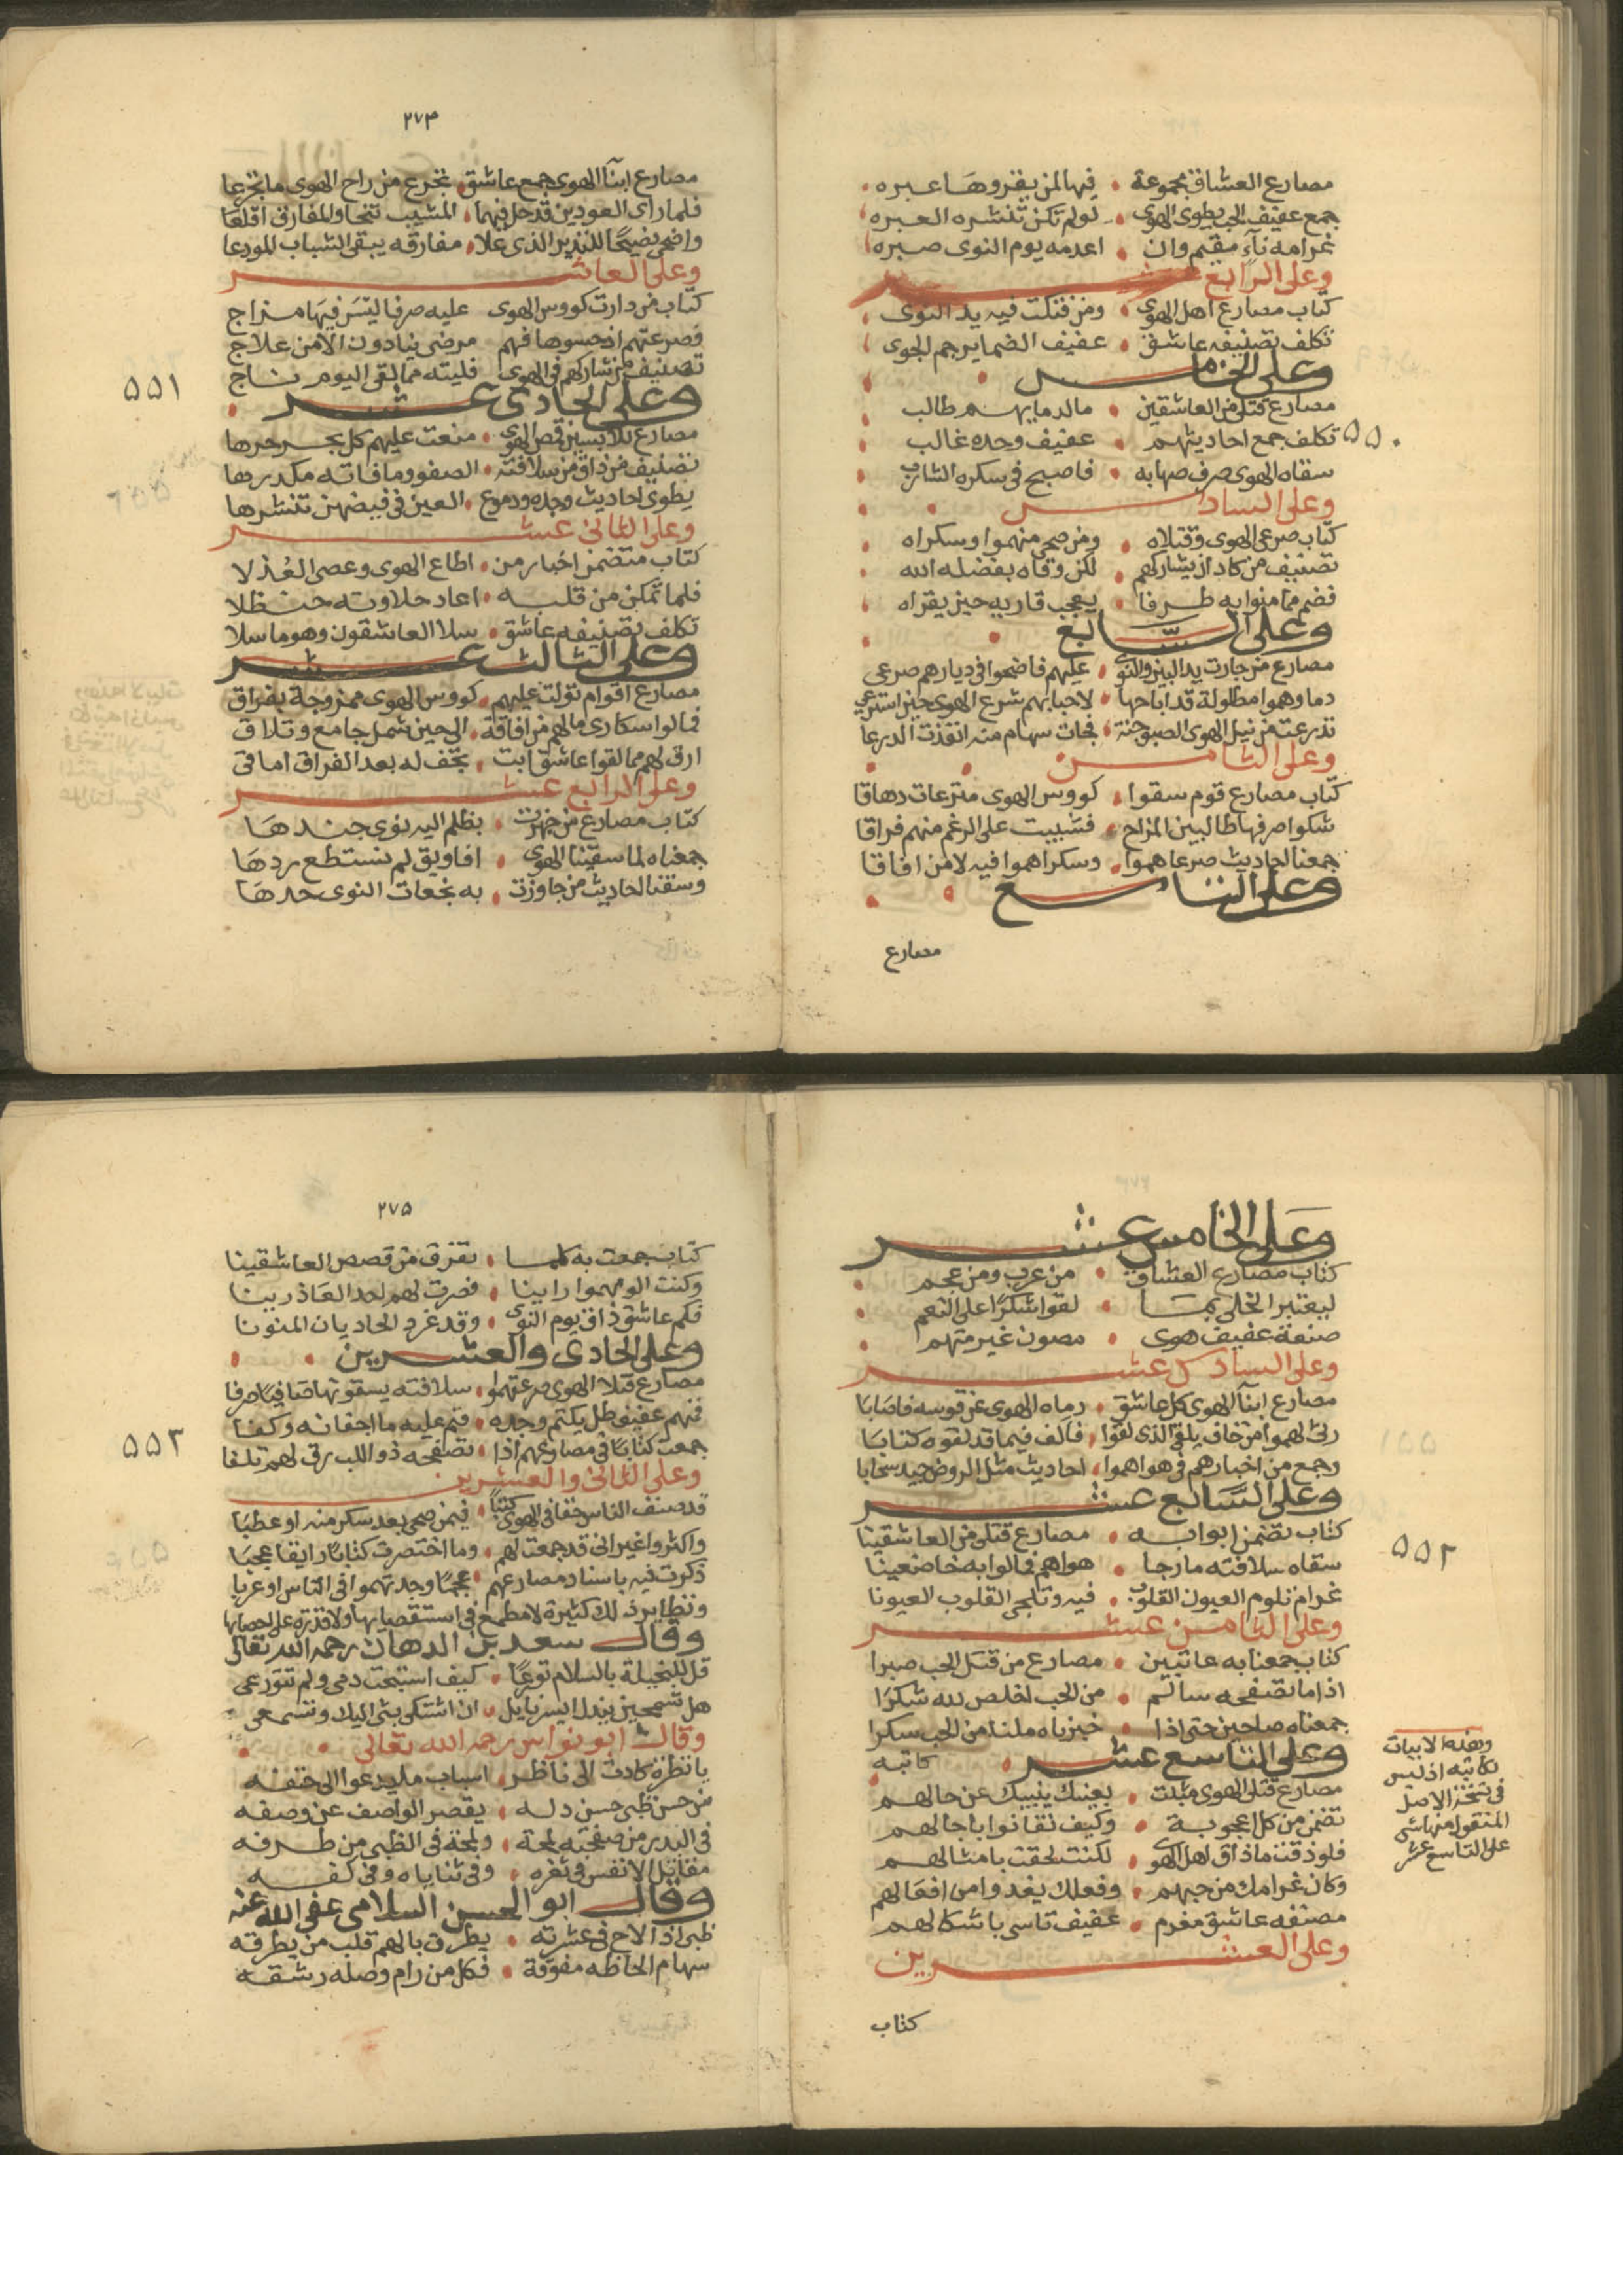 مصارع العشاق مجموعة • فيها لمن يقروها عبره
جمع عفيف الحب يطوى الهوى • لولم تكن تنشره العبره
غرامه ناء مقيم وان • اعدمه يوم النوى صبره
وعلى الرابع
كتاب مصارع اهل الهوى • ومن فتكت فيه يد النوى
تكلف تصنيفه عاشق • عفيف الضماير جم الجوى
وعلى الخامس
مصارع قتلى من العاشقين • مالدمايهم طالب
تكلف جمع احاديثهم • عفيف وجده غالب
٥٥٠
سقاه الهوى صرف صهبايه • فاصبح فى سكره الشارب
وعلى السادس
كتاب صرعى الهوى وقتلاه • ومن صحى منهموا وسكراه
تصنيف من كاد ان يشاركهم • لكن وقاه بفضله الله
فضم مما منوا به طرفا • يعجب قاريه حين يقراه
وعلى السابع
مصارع من جارت يد البين والنوى • عليهم فاضحوا فى ديارهم صرعى
دماوهموا مطلولة قد اباحها • لاحبابهم شرع الهوى حين استرعى
تذرعت من نبل الهوى الصبر جنة • فجات سهام منه انفذت الدرعا
وعلى الثامن
كتاب مصارع قوم سقوا • كووس الهوى مترعات دهاقا
شكوا صرفها طالبين المزاج • فشيبت على الرغم منهم فراقا
جمعنا احاديث صرعاهموا • وسكراهموا فيه لا من افاقا
وعلى التاسع
مصارع
٢٧٣
مصارع ابنآ الهوى جمع عاشق • تجرع من راح الهوى ما تجرعا
فلما راى العودين قد حل فيهما • المشيب تنحا والمفارق اقلعا
واضحى نضيحًا للنذير الذى علا • مفارقه يبقى الشباب المودعا
وعلى العاشر
كتاب من دارت كووس الهوى عليه صرفا ليس فيها مزاج
فصرعتهم اذ حسوها فهم مرضى ينادون الا من علاج
تصنيف من شاركهم فى الهوى فليته مما لقى اليوم ناج
٥٥١
وعلى الحادى عشر
مصارع للابسين قمص الهوى • منعت عليهم كل بحسرحرها
تصنيف من ذاق من سلافته • الصفو وما فاته مكدرها
يطوى احاديث وجده ودموع • العين فى فيضهن تنشرها
وعلى الثانى عشر
كتاب متضمن اخبار من • اطاع الهوى وعصى العذلا
فلما تمكن من قلبه • اعاد حلاوته حنظلا
تكلف تصنيفه عاشق • سلا العاشقون وهو ما سلا
وعلى الثالث عشر
مصارع اقوام تولت عليهم • كووس الهوى ممزوجة بفراق
فمالوا سكارى ما لهم من افاقة • الى حين شمل جامع وتلاق
ارق لهم مما لقوا عاشق ابت • تجف له بعد الفراق اماقى
وعلى الرابع عشر
كتاب مصارع من جهزت • بظلم اليه نوى جندها
جمعناه لما سقتنا الهوى • افاويق لم نستطع ردها
وسقنا احاديث من جاوزت • به فجعات النوى حدها
وعلى الخامس عشر
كتاب مصارع العشاق • من عرب ومن عجم
ليعتبر الخلى بما • لقوا شكرًا على النعم
صنعة عفيف هوى • مصون غير متهم
وعلى السادس عشر
مصارع ابنآ الهوى كل عاشق • رماه الهوى عن قوسه فاصابا
رثى لهموا من خاف يلقى الذى لقوا • فالف فيما قد لقوه كتابا
وجمع من اخبارهم فى هواهموا • احاديث مثل الروض جيد سحابا
وعلى السابع عشر
كتاب تضمن ابوابه • مصارع قتلى من العاشقينا
٥٥٢
سقاه سلافته مارجا • هواهم فمالوا به خاضعينا
غرام تلوم العيون القلوب • فيه وتلحى القلوب العيونا
وعلى الثامن عشر
كتاب جمعنا به عاتبين • مصارع من قتل الحب صبرا
اذا ما تصفحه سالم • من الحب اخلص لله شكرًا
جمعناه صاحين حتى اذا • خبزناه ملنا من الحب سكرا
وعلى التاسع عشر • كاتبه
وهذه الابيات
لكاتبه اذ ليس
فى نسخة الاصل
المنقول منها شى
على التاسع عشر
مصارع قتلى الهوى مثلت • بعينك ينبيك عن حالهم
تضمن من كل اعجوبة • وكيف تفانوا باجالهم
فلو ذقت ما ذاق اهل الهوى • لكنت لحقت بامثالهم
وكان غرامك من حبهم • وفعلك يغدوا من افعالهم
مصنفه عاشق مغرم • عفيف تاسى باشكالهم
وعلى العشرين
كتاب
٢٧٥
كتاب جمعت به كلما • تفرق من قصص العاشقينا
وكنت الومهموا رابينا • فصرت لهم احد العاذرينا
فكم عاشق ذاق يوم النوى • وقد غرد الحاديان المنونا
وعلى الحادى والعشرين
مصارع قتلا الهوى صرعتهموا • سلافته يسقونها صافيًا صرفا
فمنهم عفيف ظل يكتم وجده • فنم عليه ما اجفانه وكفا
جمعت كتابًا فى مصارعهم اذا • تصفحه ذو اللب رق لهم تلفا
٥٥٣
وعلى الثانى والعشرين
قد صنف الناس حقا فى الهوى كتبًا • فيمن صحى بعد سكر منه او عطبا
واكثروا غير انى قد جمعت لهم • وما اختصرت كتابًا رايقا عجبا
ذكرت فيه باسناد مصارعهم • عجمًا وجدتهموا فى الناس او عربا
ونظاير ذلك كثيرة لا مطمع فى استقصايها ولا قدرة على احصايها
وقال سعد بن الدهان رحمه الله تعالى
قل للبخيلة بالسلام تورعًا • كيف استبحت دمى ولم تتورعى
هل تسمحين ببذل ايسر نايل • ان اشتكى بثى اليك وتسمعى
وقال ابو نواس رحمه الله تعالى
يا نظرة كادت الى ناظر • اسباب ما يدعوا الى حتفه
من حسن ظبى حسن دله • يقصر الواصف عن وصفه
فى البدر من صفحته لمحة • ولمحة فى الظبى من طرفه
مقاتل الانفس فى ثغره • وفى ثناياه وفى كفه
وقال ابو الحسن السلامى عفى الله عنه
ظبى اذا لاح فى عشرته • يطرق بالهم قلب من يطرقه
سهام الحاظه مفوقة • فكل من رام وصله رشقه